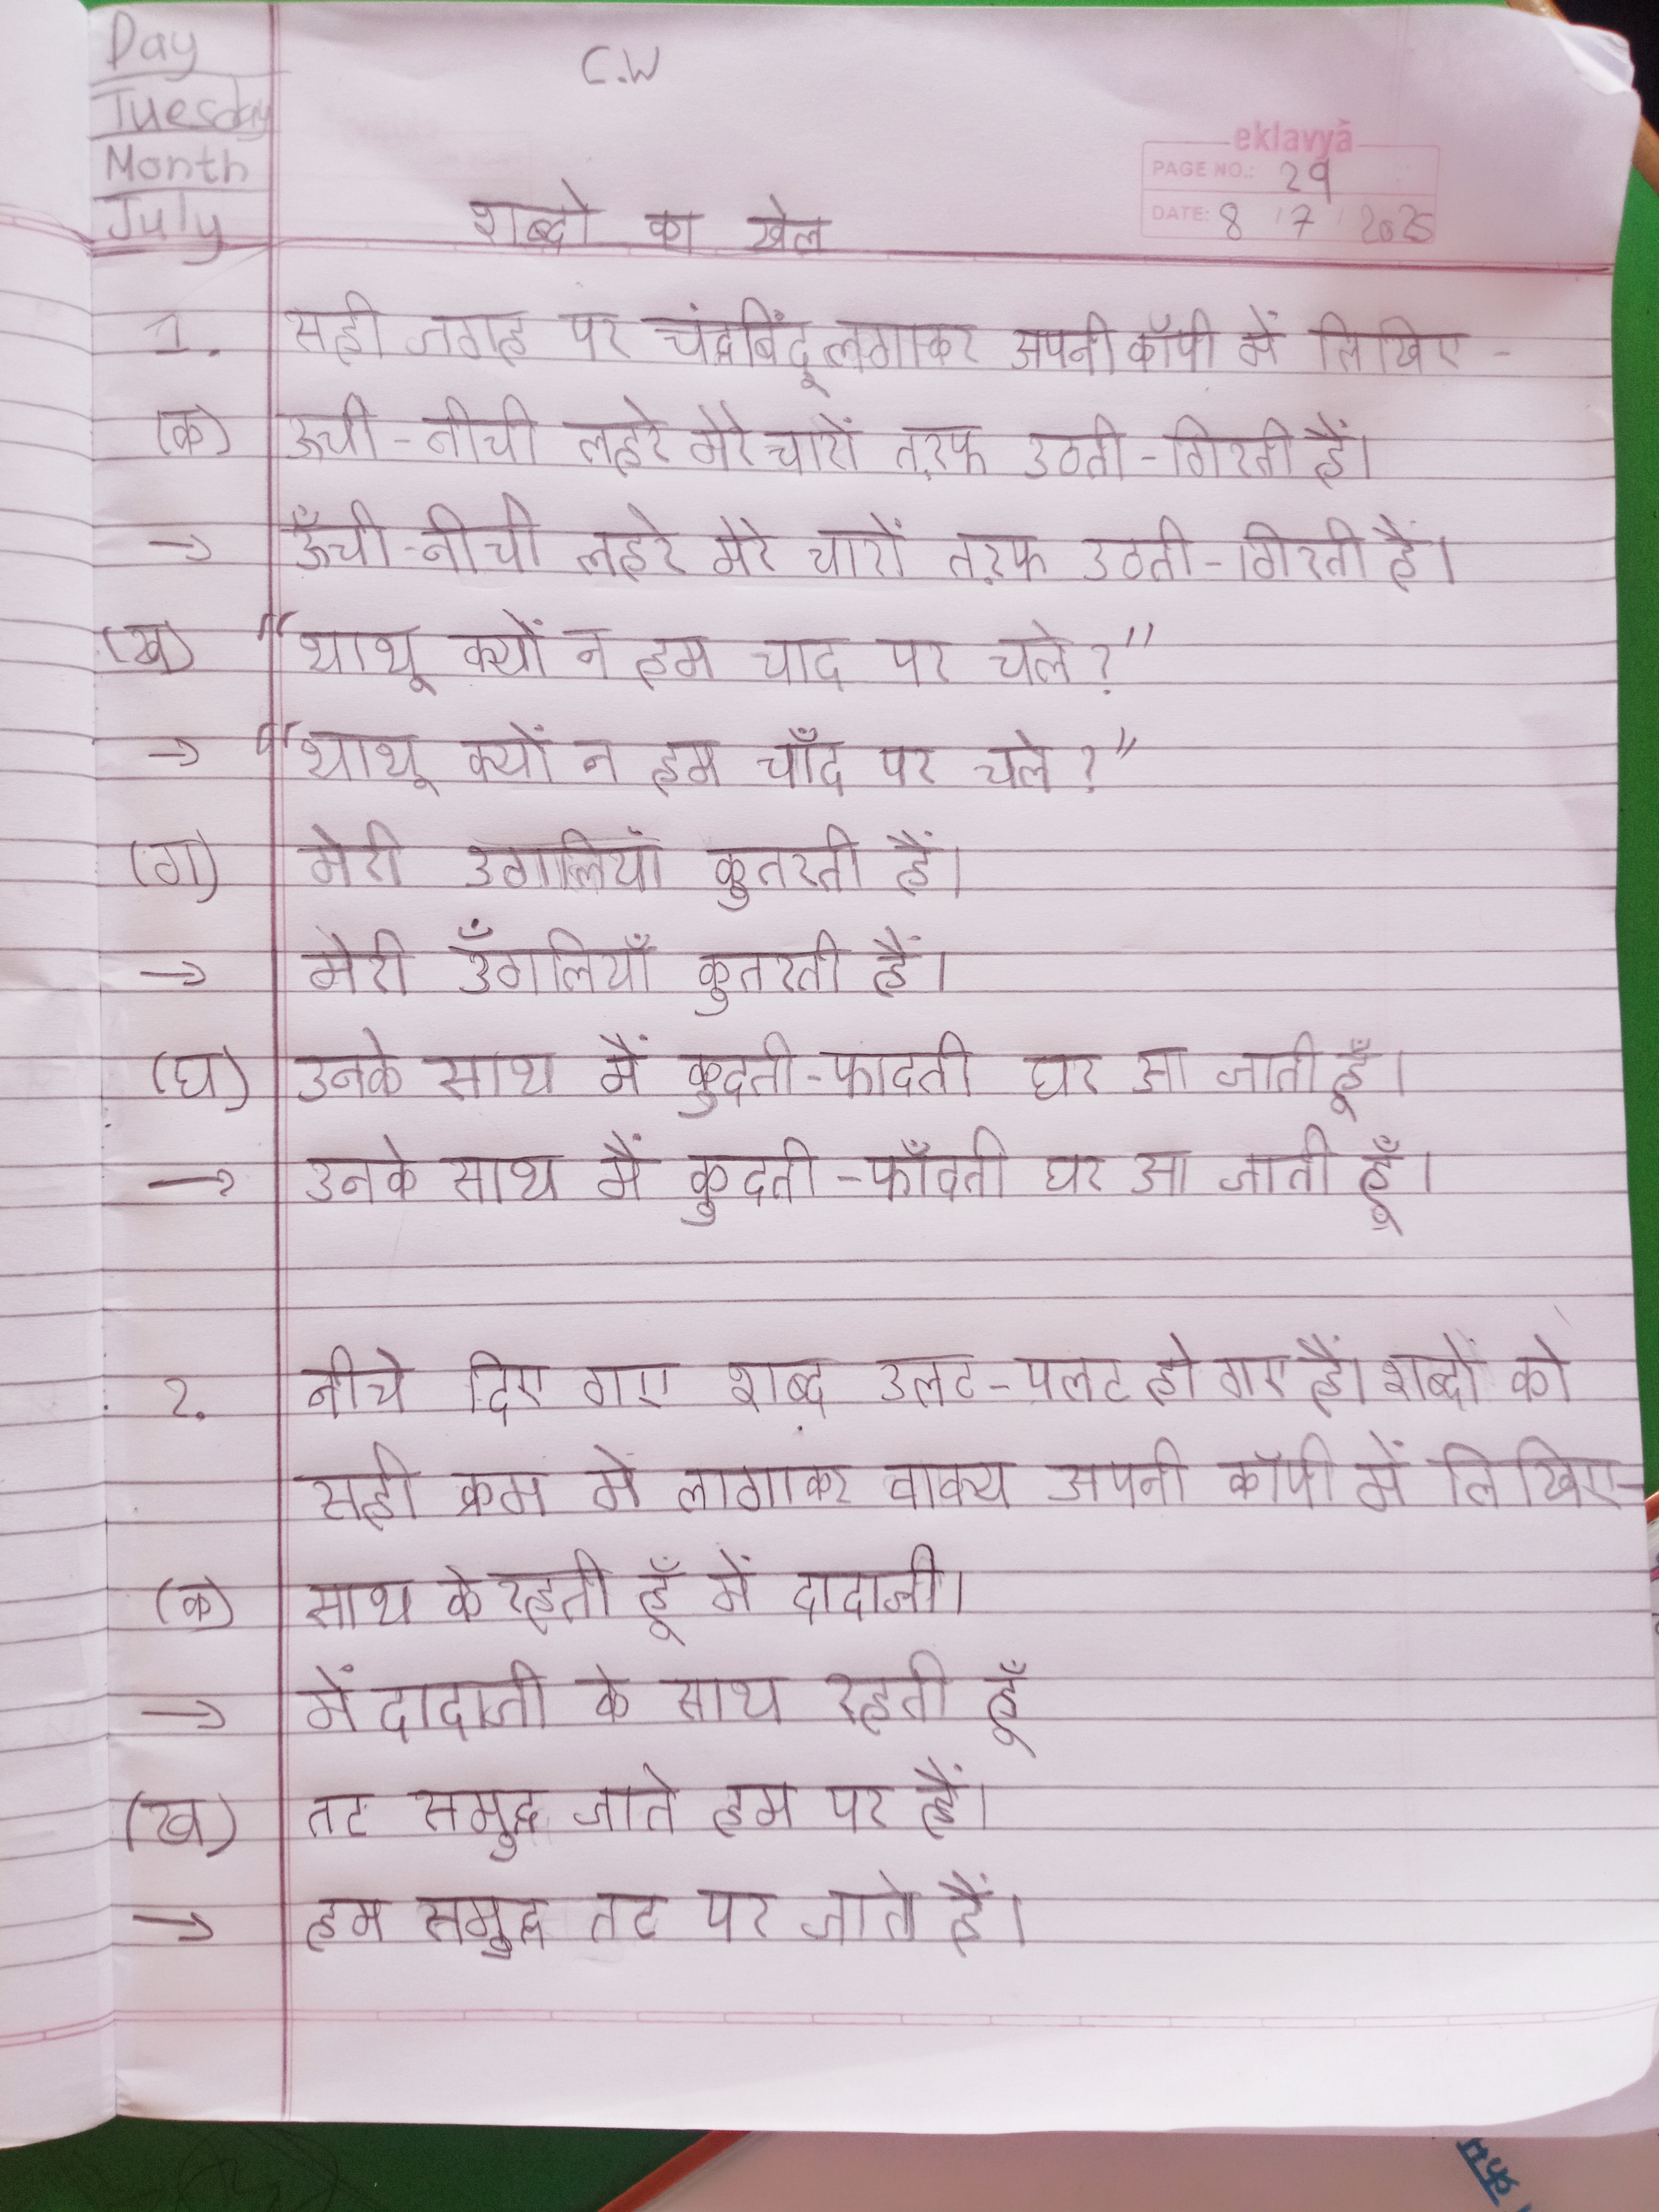 Day
Tuesday
Month
July
C.W
eklavya
PAGE NO.: 29
DATE: 8 / 7 / 2025
शब्दो का खेल
1. सही जगह पर चंद्रबिंदू लगाकर अपनी कॉपी में लिखिए -
(क) ऊची - नीची लहरे मेरे चारों तऱफ उठती - गिरती हैं।
→ ऊँची - नीची लहरे मेरे चारों तऱफ उठती - गिरती हैं।
(ख) "थाथू क्यों न हम चाद पर चले?"
→ "थाथू क्यों न हम चाँद पर चले?"
(ग) मेरी उगलियां कुतरती हैं।
→ मेरी उँगलियाँ कुतरती हैं।
(घ) उनके साथ मैं कुदती - फादती घर आ जाती हूँ।
→ उनके साथ मैं कुदती - फाँदती घर आ जाती हूँ।
2. नीचे दिए गए शब्द उलट - पलट हो गए हैं। शब्दों को
सही क्रम मे लागाकर वाक्य अपनी कॉपी में लिखिए -
(क) साथ के रहती हूँ में दादाजी।
→ में दादाजी के साथ रहती हूँ
(ख) तट समुद्र जाते हम पर हैं।
→ हम समुद्र तट पर जाते हैं।